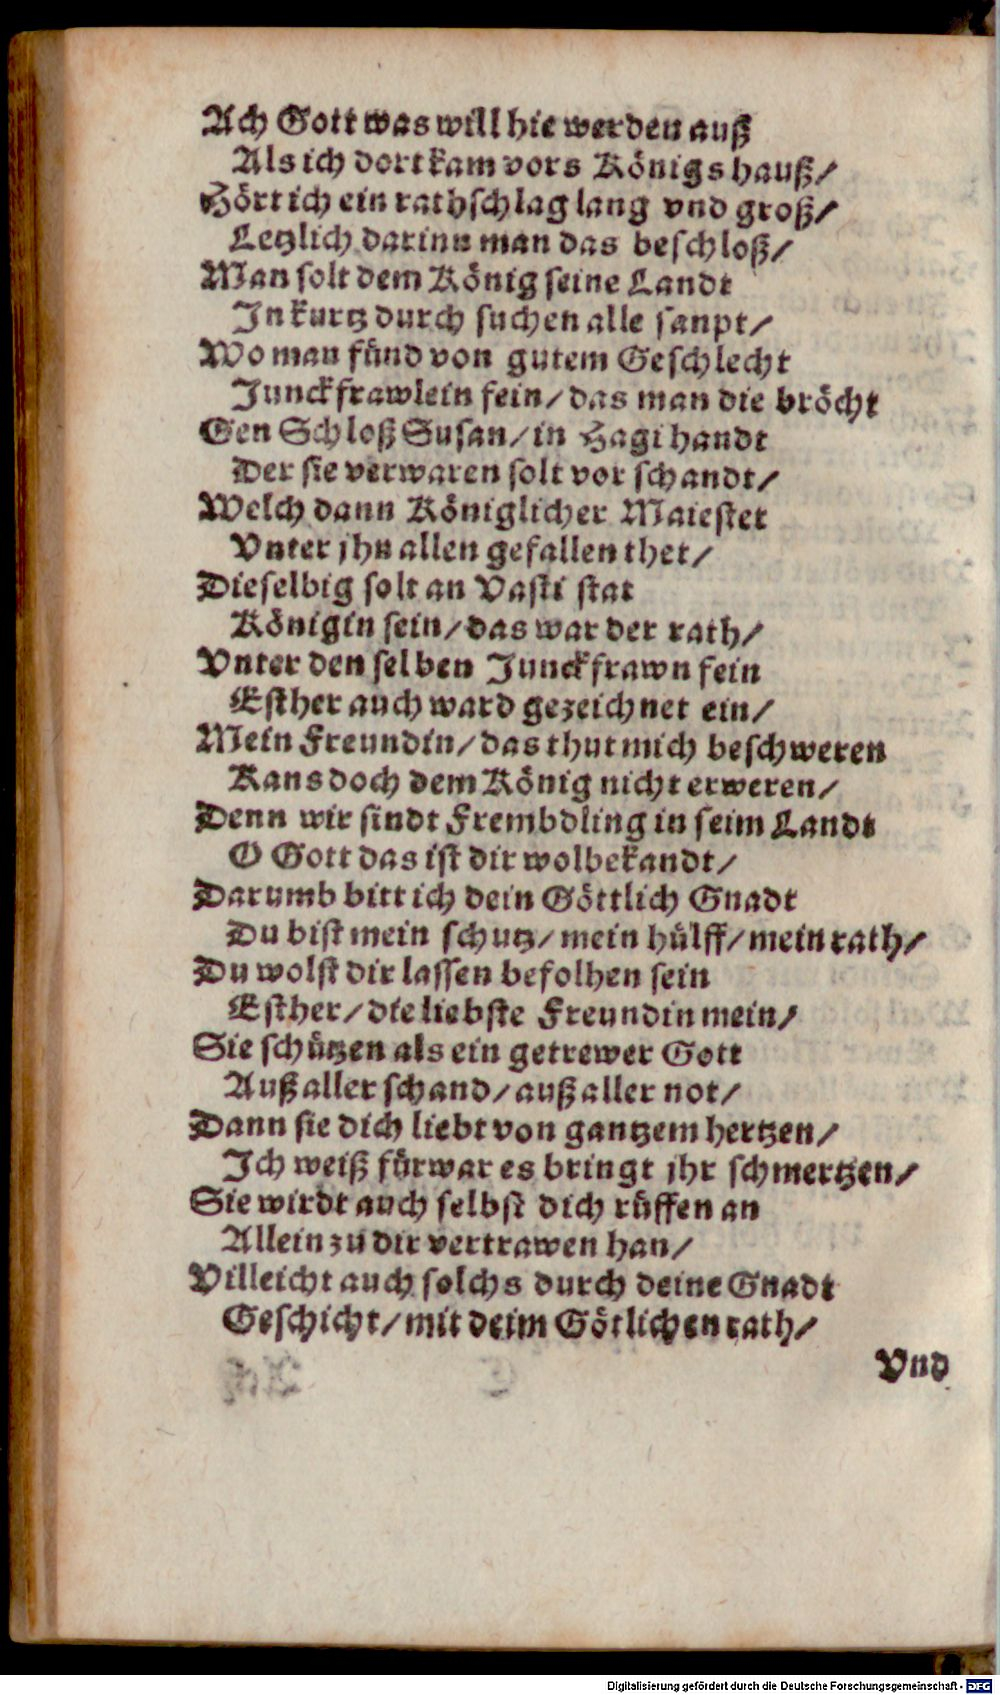 Ach Gott was will hie werden auß
Als ich dort kam vors Königs hauß/
Hört ich ein rathschlag lang vnd groß/
Letzlich darinn man das beschloß/
Man solt dem König seine Landt
In kurtz durch suchen alle sanpt/
Wo man fünd von gutem Geschlecht
Junckfrawlein fein/ das man die bröcht
Gen Schloß Susan/ in Hagi handt
Der sie verwaren solt vor schandt/
Welch dann Königlicher Maiestet
Vnter jhn allen gefallen thet/
Dieselbig solt an Vasti stat
Königin sein/ das war der rath/
Vnter den selben Junckfrawn fein
Esther auch ward gezeichnet ein/
Mein Freundin/ das thut mich beschweren
Kans doch dem König nicht erweren/
Denn wir sindt Frembdling in seim Landt
O Gott das ist dir wol bekandt/
Darumb bitt ich dein Göttlich Gnadt
Du bist mein schutz/ mein hülff/ mein rath/
Du wolst dir lassen befolhen sein
Esther/ die liebste Freundin mein/
Sie schützen als ein getrewer Gott
Auß aller schand/ auß aller not/
Dann sie dich liebt von gantzem hertzen/
Ich weiß fürwar es bringt jhr schmertzen/
Sie wirdt auch selbst dich rüffen an
Allein zu dir vertrawen han/
Villeicht auch solchs durch deine Gnadt
Geschicht/ mit deim Götlichen rath/
Vnd
Digitalisierung gefördert durch die Deutsche Forschungsgemeinschaft - DFG